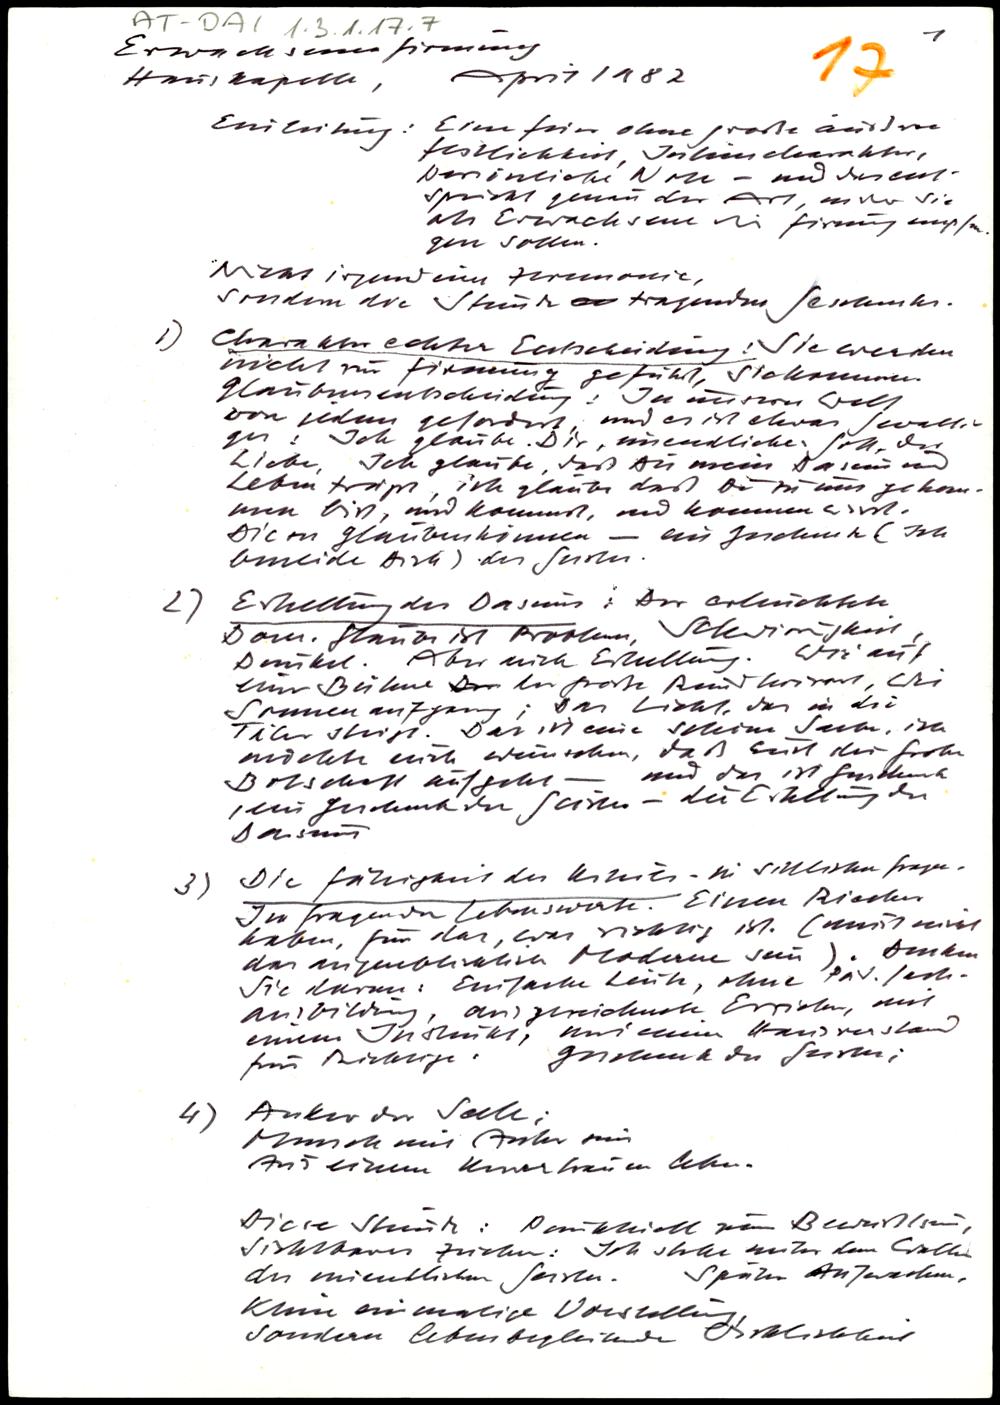 AT-DAI 1.3.1.17.7
1
Erwachsenenfirmung
17
Hauskapelle, April 1982
Einleitung: Eine Feier ohne große äußere
Festlichkeit, Intimcharakter,
Persönliche Note – und das ent-
spricht genau der Art, in der Sie
als Erwachsene die Firmung empfan-
gen sollen.
Nicht irgendeine Zeremonie,
sondern die Stunde tragenden Geschenks.
1) Charakter echter Entscheidung: Sie werden
nicht zur Firmung geführt, Sie kommen.
Glaubensentscheidung: In unserer Welt
von jedem gefordert, und es ist etwas Gewalti-
ges: Ich glaube Dir, unendlicher Gott, der
Liebe, Ich glaube, daß Du mein Dasein und
Leben trägst, ich glaube daß Du zu uns gekom-
men bist, und kommst, und kommen wirst.
Dieses Glaubenkönnen – ein Geschenk (Ich
beneide Dich) des Geistes.
2) Erhellung des Daseins: Der erleuchtete
Dom. Glaube ist Problem, Schwierigkeit,
Dunkel. Aber auch Erhellung. Wie auf
einer Bühne der große Rundhorizont, wie
Sonnenaufgang; Das Licht, das in die
Täler steigt. Das ist eine schöne Sache, ich
möchte euch wünschen, daß euch die frohe
Botschaft aufgeht – und das ist Geschenk
, ein Geschenk des Geistes – die Erhellung des
Daseins
3) Die Fähigkeit des Urteils – in sittlichen Fragen.
In Fragen der Lebenswerte. Einen Riecher
haben, für das, was richtig ist. (muß nicht
das augenblicklich Moderne sein). Denken
Sie daran: Einfache Leute, ohne Päd. Fach-
ausbildung, ausgezeichnete Erzieher, mit
einem Instinkt, mit einem Hausverstand
fürs Richtige. Geschenk des Geistes;
4) Anker der Seele;
Mensch mit Anker sein
Aus einem Urvertrauen leben.
Diese Stunde: Punkthaft zum Bewußtsein,
Sichtbares Zeichen: Ich stehe unter dem Walten
des unendlichen Geistes. Später Aufwachen,
Keine einmalige Vorstellung,
sondern lebensbegleitende Wirklichkeit